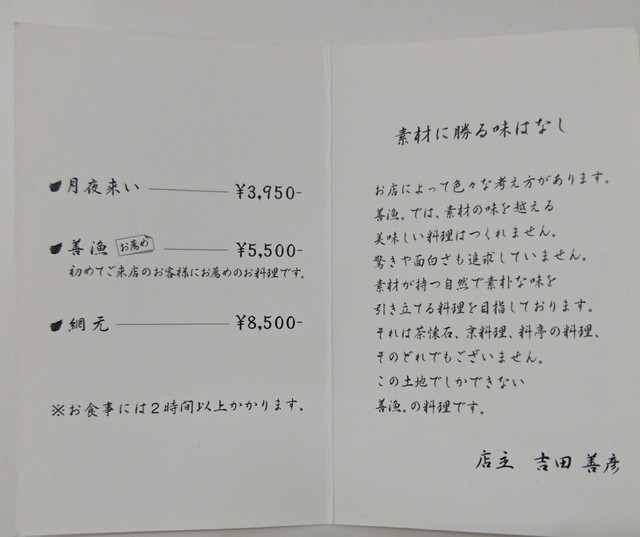 月夜来い ¥3,950-
善漁 お薦め ¥5,500-
初めてご来店のお客様にお薦めのお料理です。
網元 ¥8,500-
※お食事には2時間以上かかります。
素材に勝る味はなし
お店によって色々な考え方があります。
善漁。では、素材の味を越える
美味しい料理はつくれません。
驚きや面白さも追求していません。
素材が持つ自然で素朴な味を
引き立てる料理を目指しております。
それは茶懐石、京料理、料亭の料理、
そのどれでもございません。
この土地でしかできない
善漁。の料理です。
店主 吉田 善彦